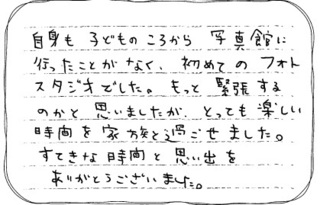 自身も 子どものころから 写真館に
行ったことがなく、初めての フォト
スタジオでした。もっと 緊張する
のかと 思いましたが、とっても 楽しい
時間を 家族と過ごせました。
すてきな 時間と 思い出を
ありがとうございました。